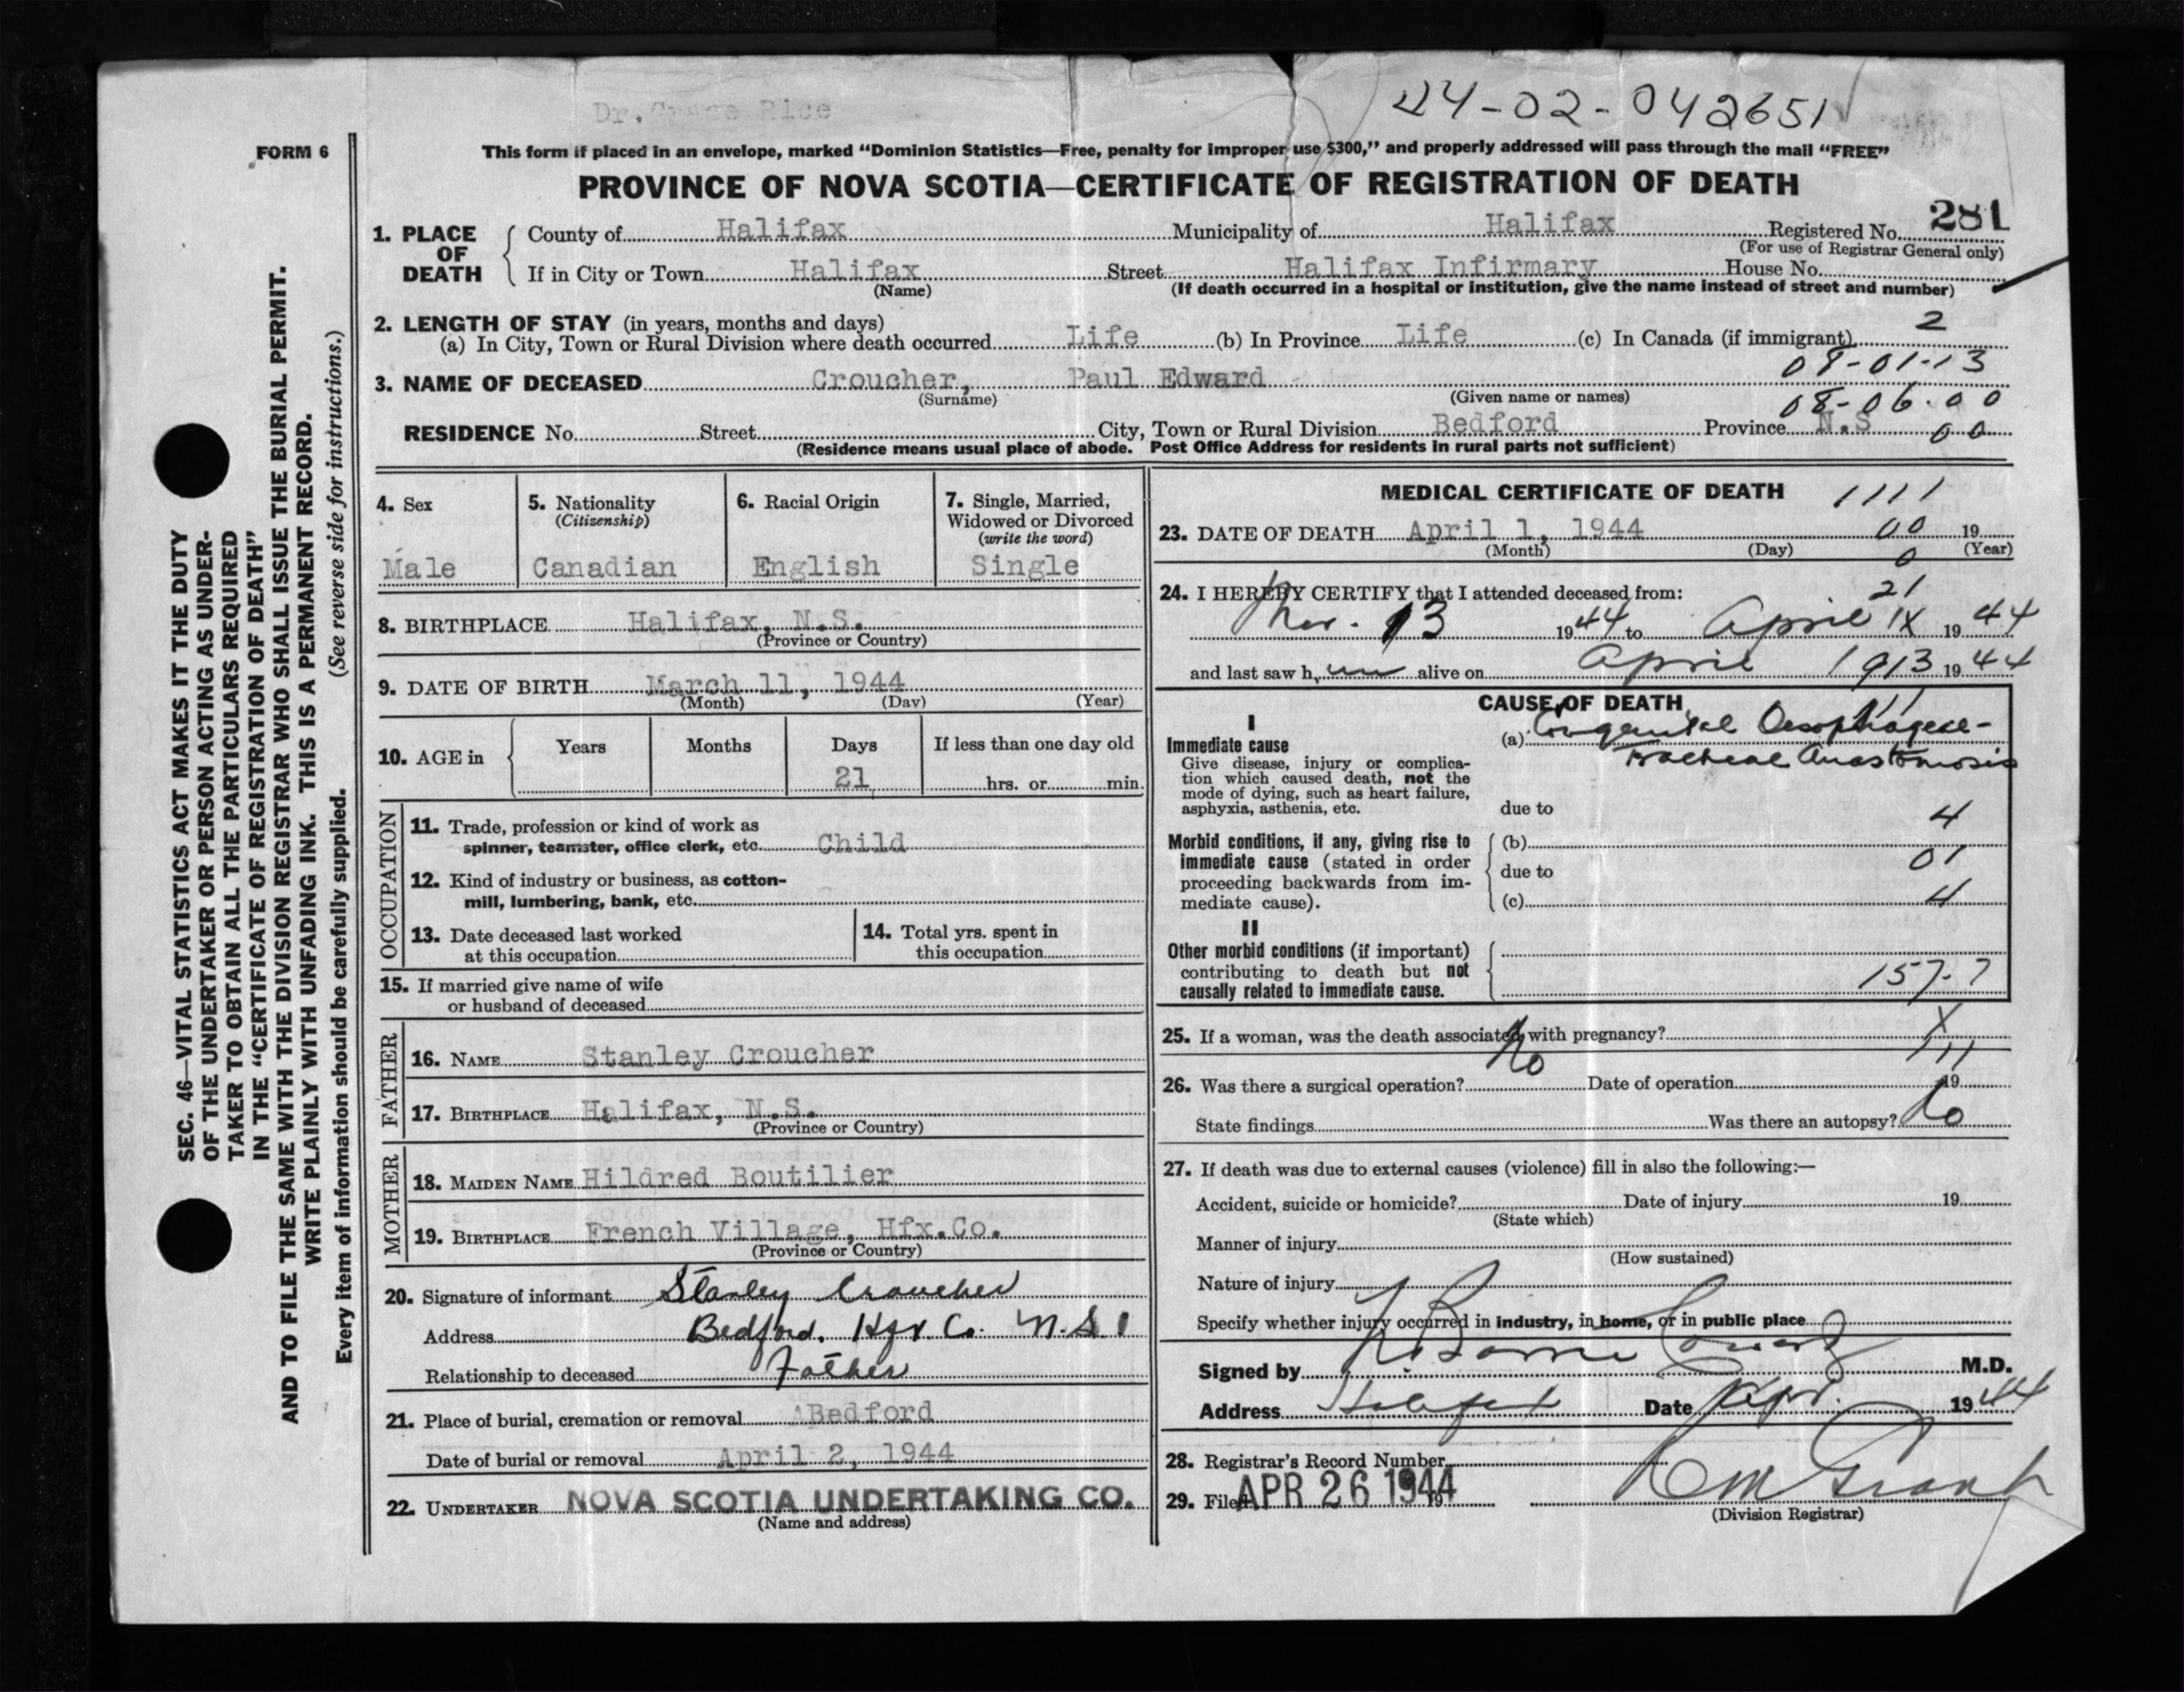 Dr. Grace Rice
44-02-042651
FORM 6
This form if placed in an envelope, marked “Dominion Statistics—Free, penalty for improper use $300,” and properly addressed will pass through the mail “FREE”
PROVINCE OF NOVA SCOTIA—CERTIFICATE OF REGISTRATION OF DEATH
281
1. PLACE OF DEATH County of Halifax Municipality of Halifax Registered No.
(For use of Registrar General only)
If in City or Town Halifax Street Halifax Infirmary House No.
(Name) (If death occurred in a hospital or institution, give the name instead of street and number)
2. LENGTH OF STAY (in years, months and days)
(a) In City, Town or Rural Division where death occurred Life (b) In Province Life (c) In Canada (if immigrant) 2
08-01-13
3. NAME OF DECEASED Croucher, Paul Edward
(Surname) (Given name or names) 08-06-00
RESIDENCE No. Street City, Town or Rural Division Bedford Province N.S 00
(Residence means usual place of abode. Post Office Address for residents in rural parts not sufficient)
4. Sex
Male
5. Nationality
(Citizenship)
Canadian
6. Racial Origin
English
7. Single, Married,
Widowed or Divorced
(write the word)
Single
8. BIRTHPLACE Halifax, N.S.
(Province or Country)
9. DATE OF BIRTH March 11, 1944
(Month) (Day) (Year)
10. AGE in Years Months Days If less than one day old
21 hrs. or min.
OCCUPATION
11. Trade, profession or kind of work as
spinner, teamster, office clerk, etc. Child
12. Kind of industry or business, as cotton-
mill, lumbering, bank, etc.
13. Date deceased last worked
at this occupation
14. Total yrs. spent in
this occupation
15. If married give name of wife
or husband of deceased
FATHER
16. NAME Stanley Croucher
17. BIRTHPLACE Halifax, N.S.
(Province or Country)
MOTHER
18. MAIDEN NAME Hildred Boutilier
19. BIRTHPLACE French Village, Hfx.Co.
(Province or Country)
20. Signature of informant Stanley Croucher
Address Bedford, Hfx. Co. N.S
Relationship to deceased Father
21. Place of burial, cremation or removal Bedford
Date of burial or removal April 2, 1944
22. UNDERTAKER NOVA SCOTIA UNDERTAKING CO.
(Name and address)
MEDICAL CERTIFICATE OF DEATH 1111
23. DATE OF DEATH April 1, 1944 00 19
(Month) (Day) (Year)
0
24. I HEREBY CERTIFY that I attended deceased from: 21
Mar. 13 1944 to April 1 1944
and last saw him alive on April 1 1944
CAUSE OF DEATH
I
Immediate cause
Give disease, injury or complica-
tion which caused death, not the
mode of dying, such as heart failure,
asphyxia, asthenia, etc.
(a) Congenital Oesophageal-
Tracheal Anastomosis
due to
4
Morbid conditions, if any, giving rise to
immediate cause (stated in order
proceeding backwards from im-
mediate cause).
(b)
01
due to
(c) 4
II
Other morbid conditions (if important)
contributing to death but not
causally related to immediate cause.
157-7
25. If a woman, was the death associated with pregnancy? X
26. Was there a surgical operation? No Date of operation 19
State findings Was there an autopsy? No
27. If death was due to external causes (violence) fill in also the following:—
Accident, suicide or homicide? Date of injury 19
(State which)
Manner of injury
(How sustained)
Nature of injury
Specify whether injury occurred in industry, in home, or in public place
Signed by M.D.
Address Halifax Date Apr. 1944
28. Registrar's Record Number
29. Filed APR 26 1944 19
(Division Registrar)
SEC. 46—VITAL STATISTICS ACT MAKES IT THE DUTY
OF THE UNDERTAKER OR PERSON ACTING AS UNDER-
TAKER TO OBTAIN ALL THE PARTICULARS REQUIRED
IN THE “CERTIFICATE OF REGISTRATION OF DEATH”
AND TO FILE THE SAME WITH THE DIVISION REGISTRAR WHO SHALL ISSUE THE BURIAL PERMIT.
WRITE PLAINLY WITH UNFADING INK. THIS IS A PERMANENT RECORD.
Every item of information should be carefully supplied. (See reverse side for instructions.)